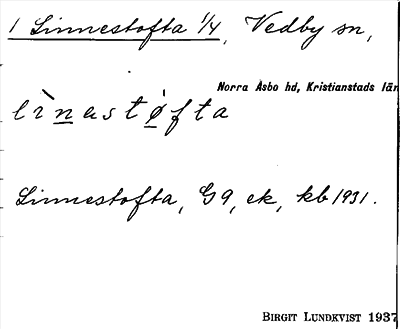 1 Linnestofta 1/4, Vedby sn,
Norra Åsbo hd, Kristianstads län
lìnastǿfta
Linnestofta, G 9, ek, kb 1931.
BIRGIT LUNDKVIST 1937